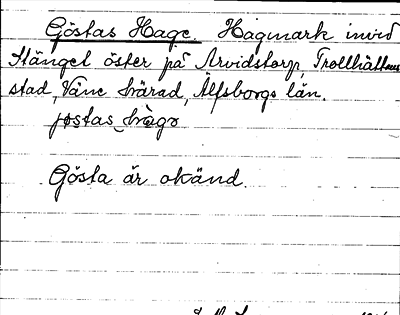 Göstas Hage. Hagmark invid
Stängel öster på Arvidstorp, Trollhättans
stad, Väne härad, Älfsborgs län.
jøstas hàgo
Gösta är okänd.